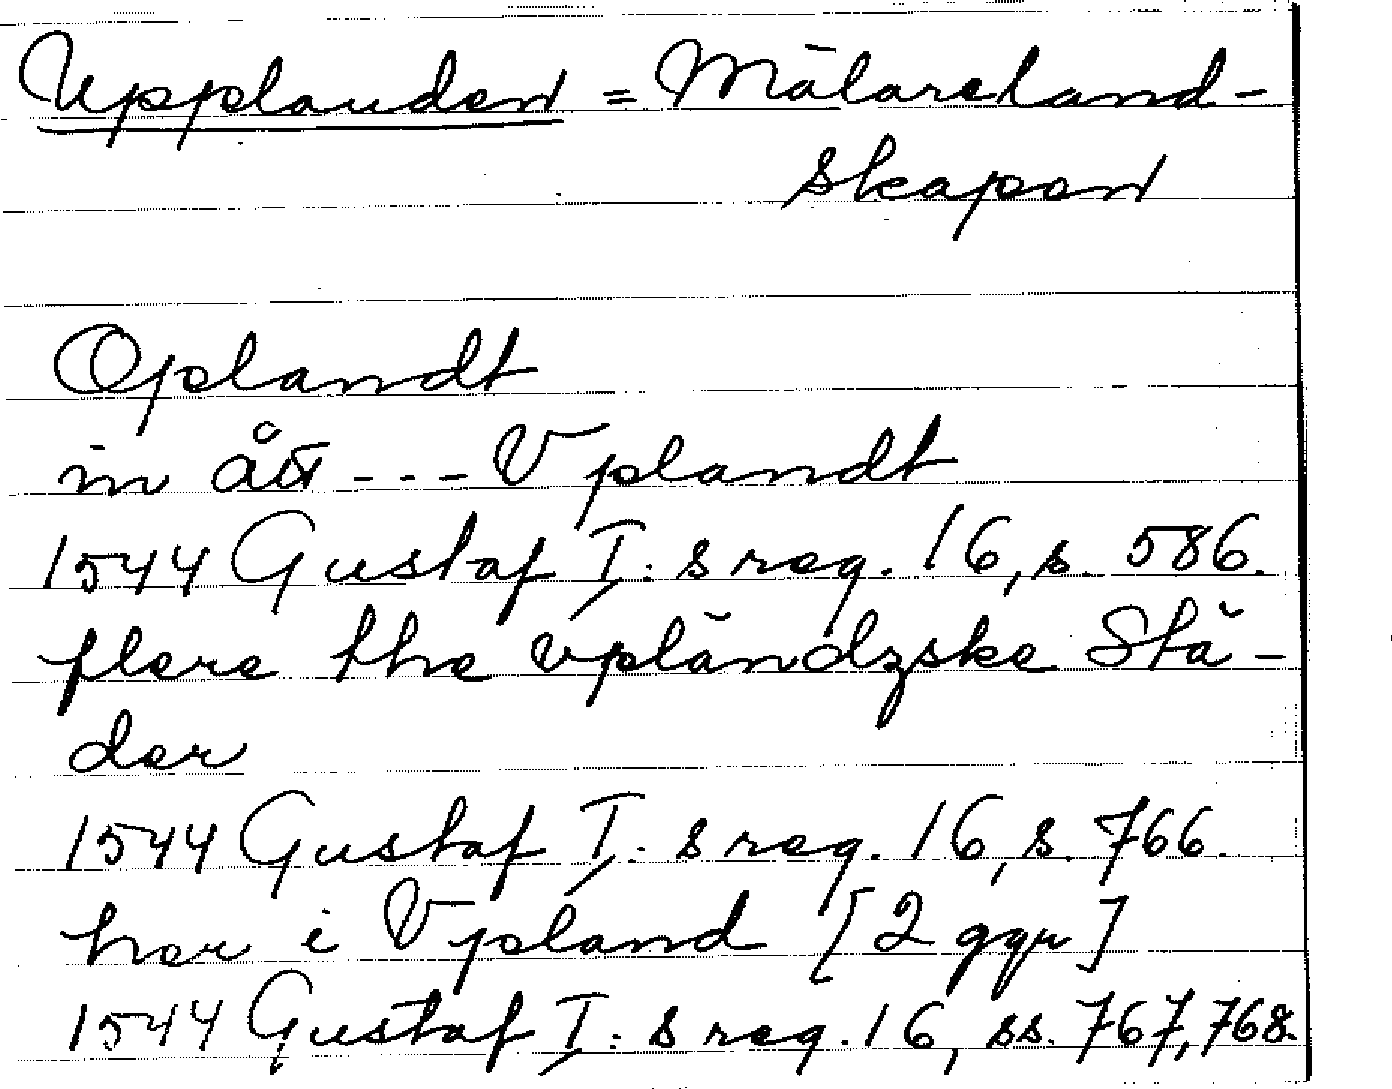 Upplanden = Mälareland-
skapen
Oplandt
in ått --- Vplandt
1544 Gustaf I: s reg. 16, s. 586.
flere the vpländzske Stä-
der
1544 Gustaf I: s reg. 16, s. 766.
her i Vpland [2 ggr]
1544 Gustaf I: s reg. 16, ss. 767, 768.